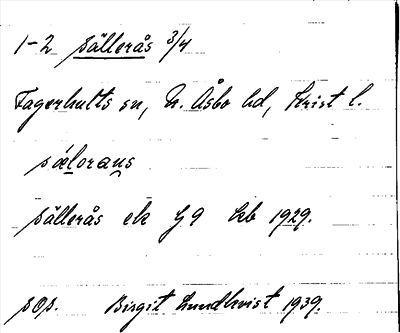 1-2 Sällerås 3/4
Fagerhults sn, N. Åsbo hd, Krist l.
sǽloraus
Sällerås ek G9 kb 1929.
sos. Birgit Lundkvist 1939.